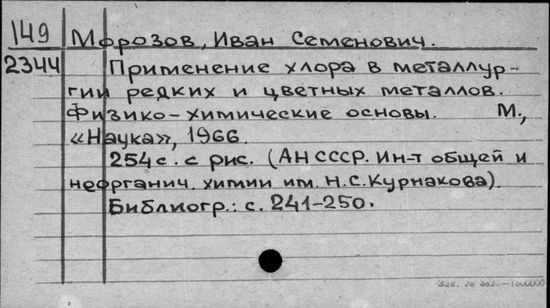 149 Морозов, Иван Семенович.
2344 Применение хлора в металлур-
гии редких и цветных металлов.
Физико-химические основы. М.,
«Наука», 1966.
254 с. с рис. (АН СССР. Ин-т общей и
неорганич. химии им. Н.С. Курнакова).
Библиогр.: с. 241-250.